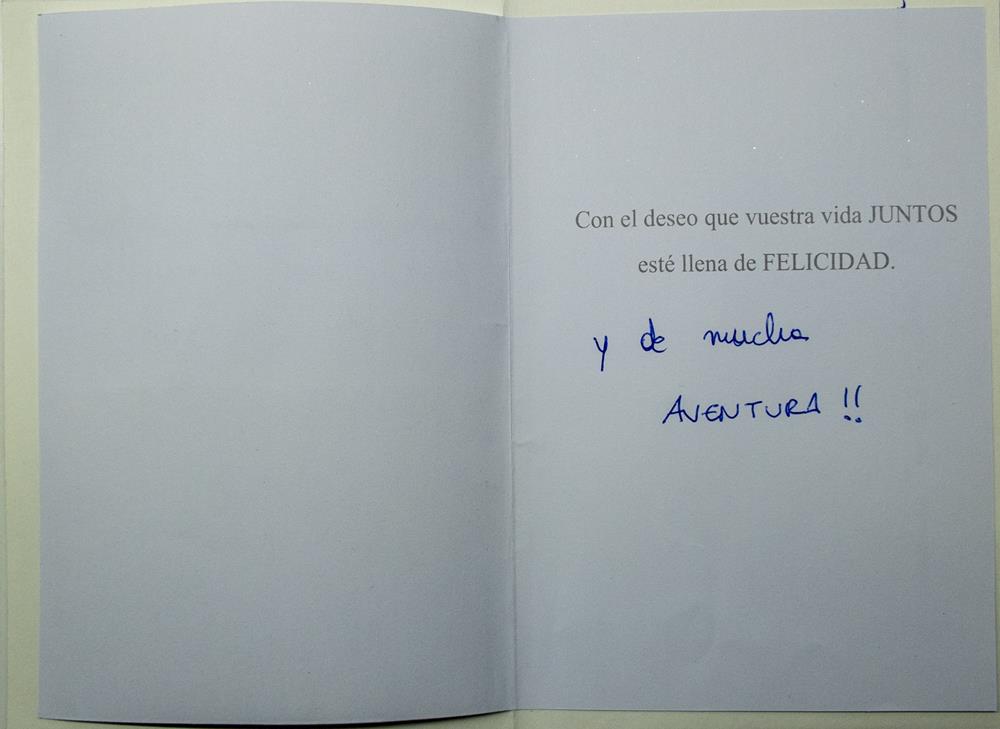 Con el deseo que vuestra vida JUNTOS
esté llena de FELICIDAD.
y de mucha
AVENTURA !!